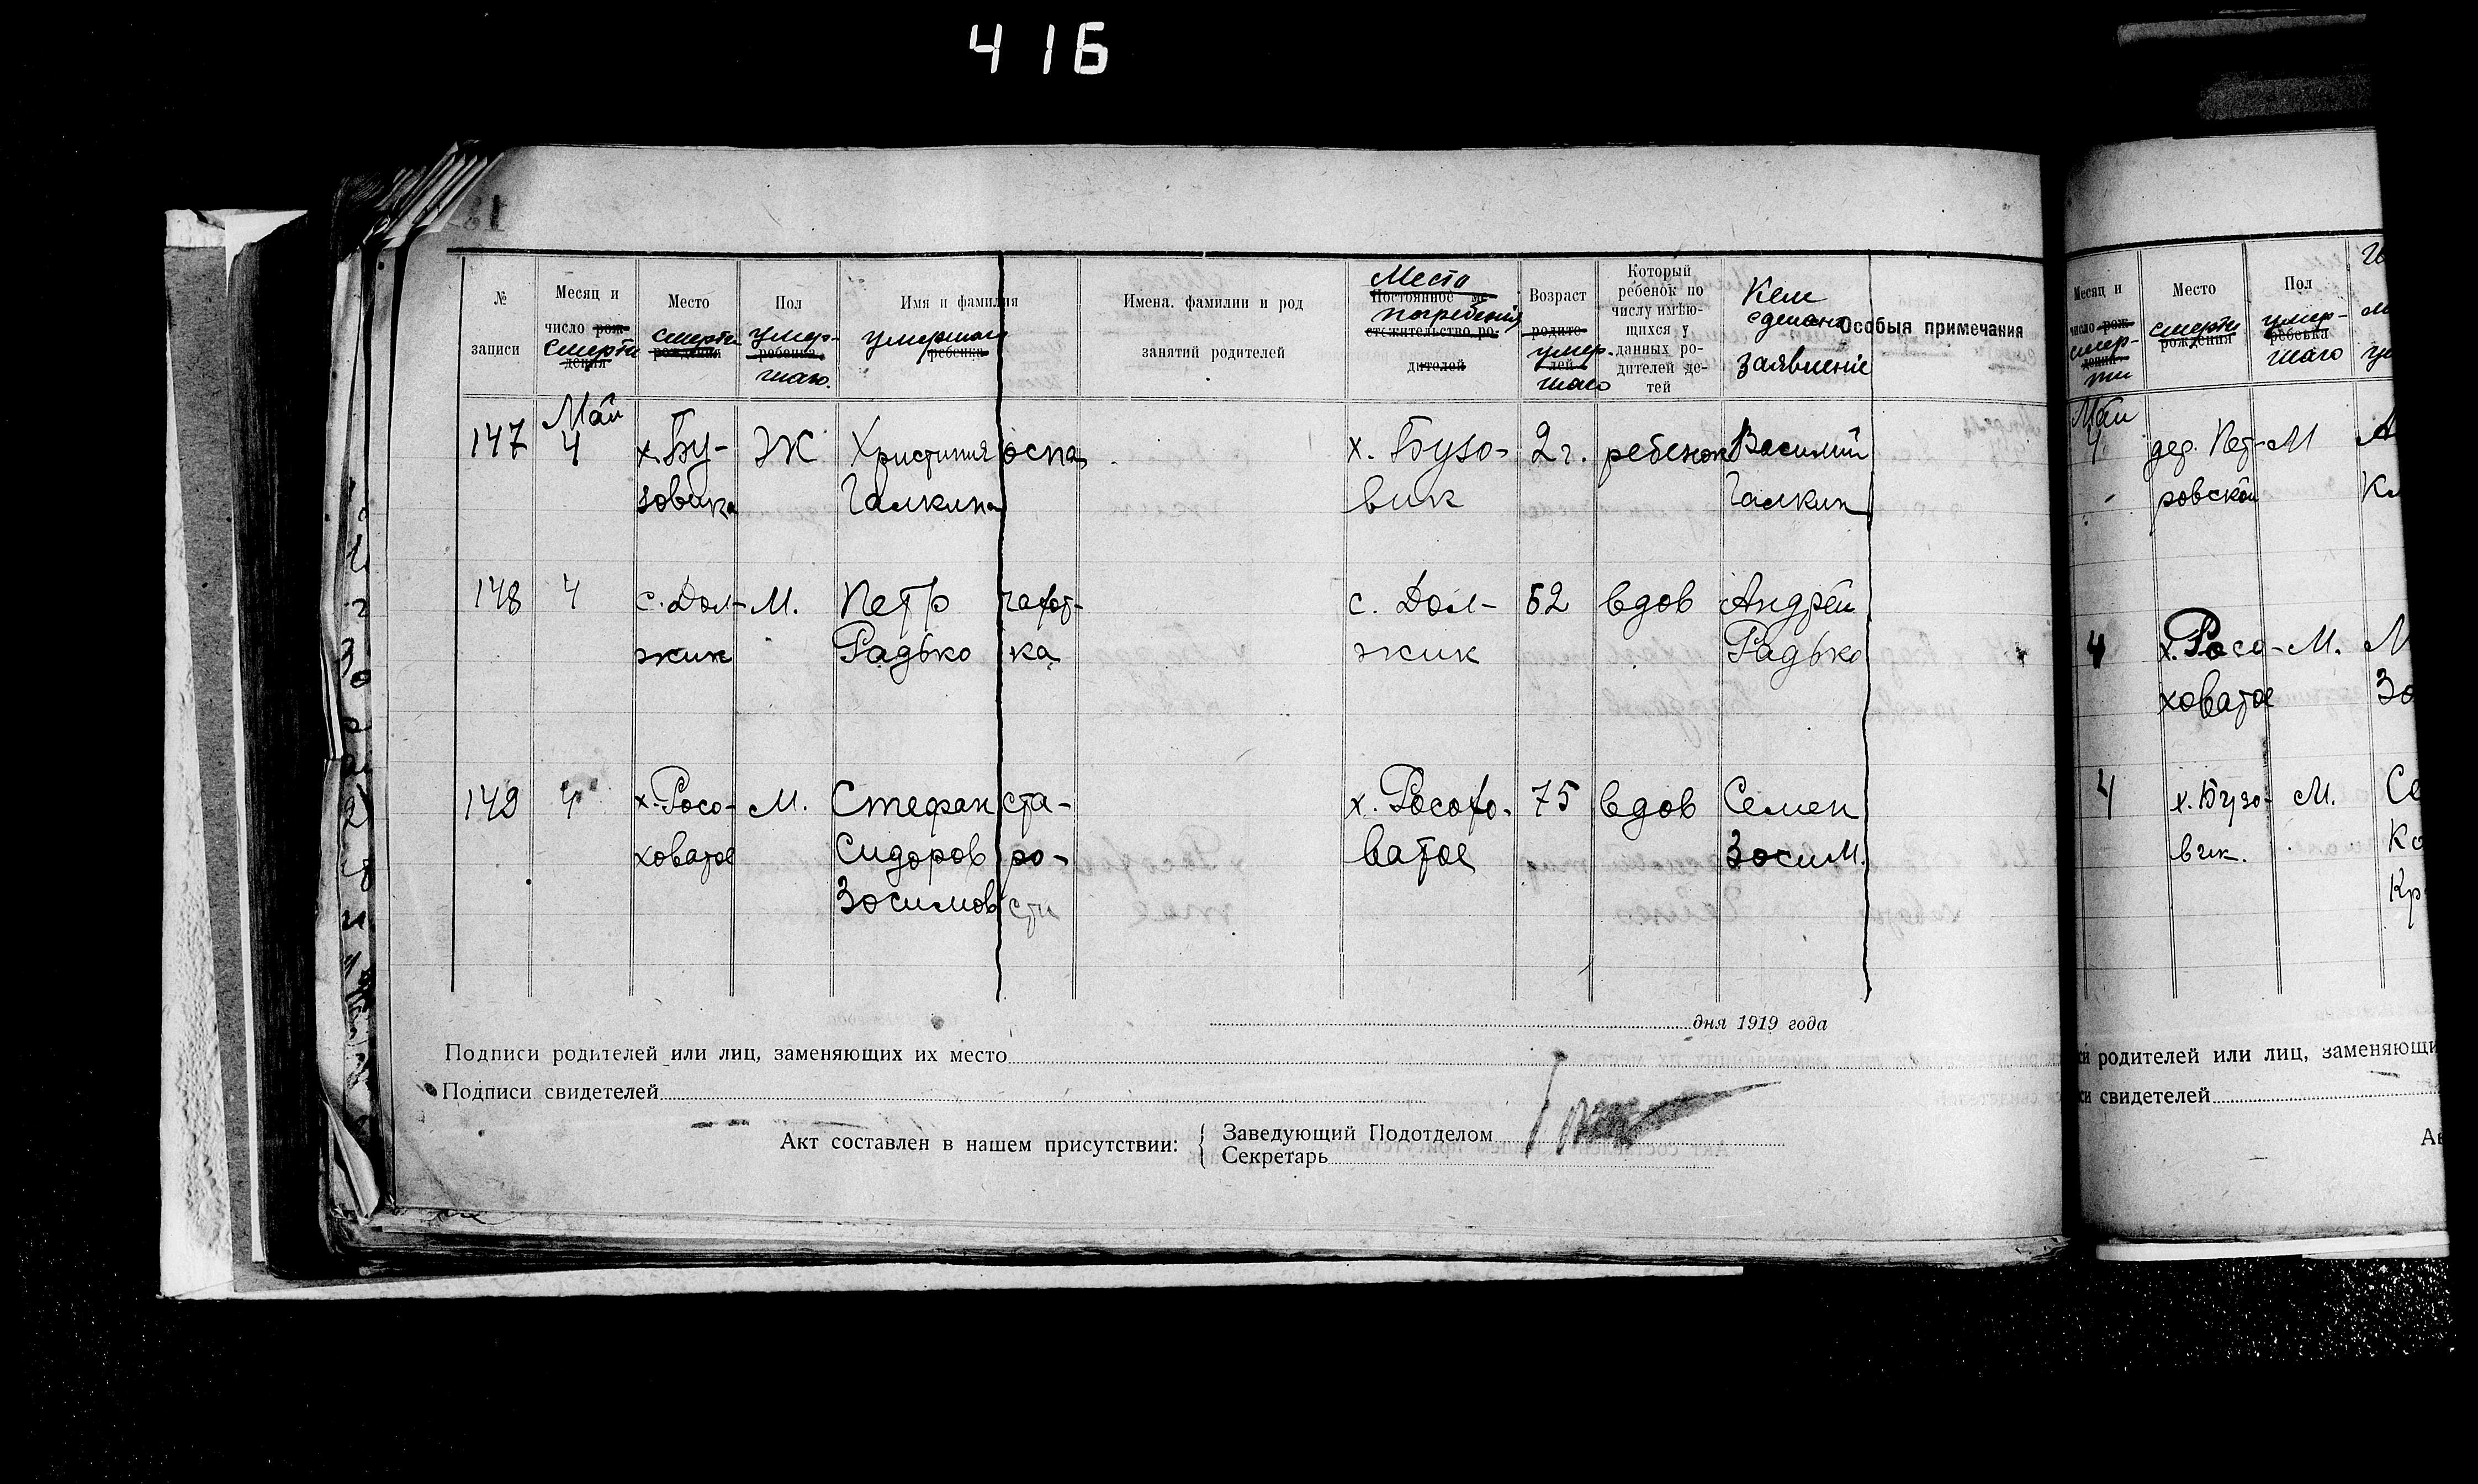 416
№ записи
Месяц и число рождения смерти
Место рождения смерти
Пол ребенка умершаго.
Имя и фамилия ребенка умершаго
Имена. фамилии и род занятий родителей
Постоянное местожительство родителей Место погребения
Возраст родителей умершаго
Который ребенок по числу имѣющихся у данных родителей детей
Кем сделано заявленіе
Особыя примечания
147 Май 4 х. Бу- Ж Христиния оспа х. Бузо- 2 г. ребенок Василий
зовика Галкина вик Галкин
148 4 с. Дол- М. Петр чахот- с. Дол- 62 вдов Андрей
жик Радько ка жик Радько
149 4 х. Росо- М. Стефан ста- х. Росохо- 75 вдов Семен
ховатое Сидоров ро- ватое Зосим.
Зосимов сти
дня 1919 года
Подписи родителей или лиц, заменяющих их место
Подписи свидетелей
Акт составлен в нашем присутствии: { Заведующий Подотделом
Секретарь
Месяц и число рождения смерти
Место рождения смерти
Пол ребенка умершаго
Май 4 дер. Пет- М
ровской
4 х. Росо- М. М
ховатое Зо
4 х. Бузо- М. Се
вик. Ко
Кр
родителей или лиц, заменяющи
свидетелей